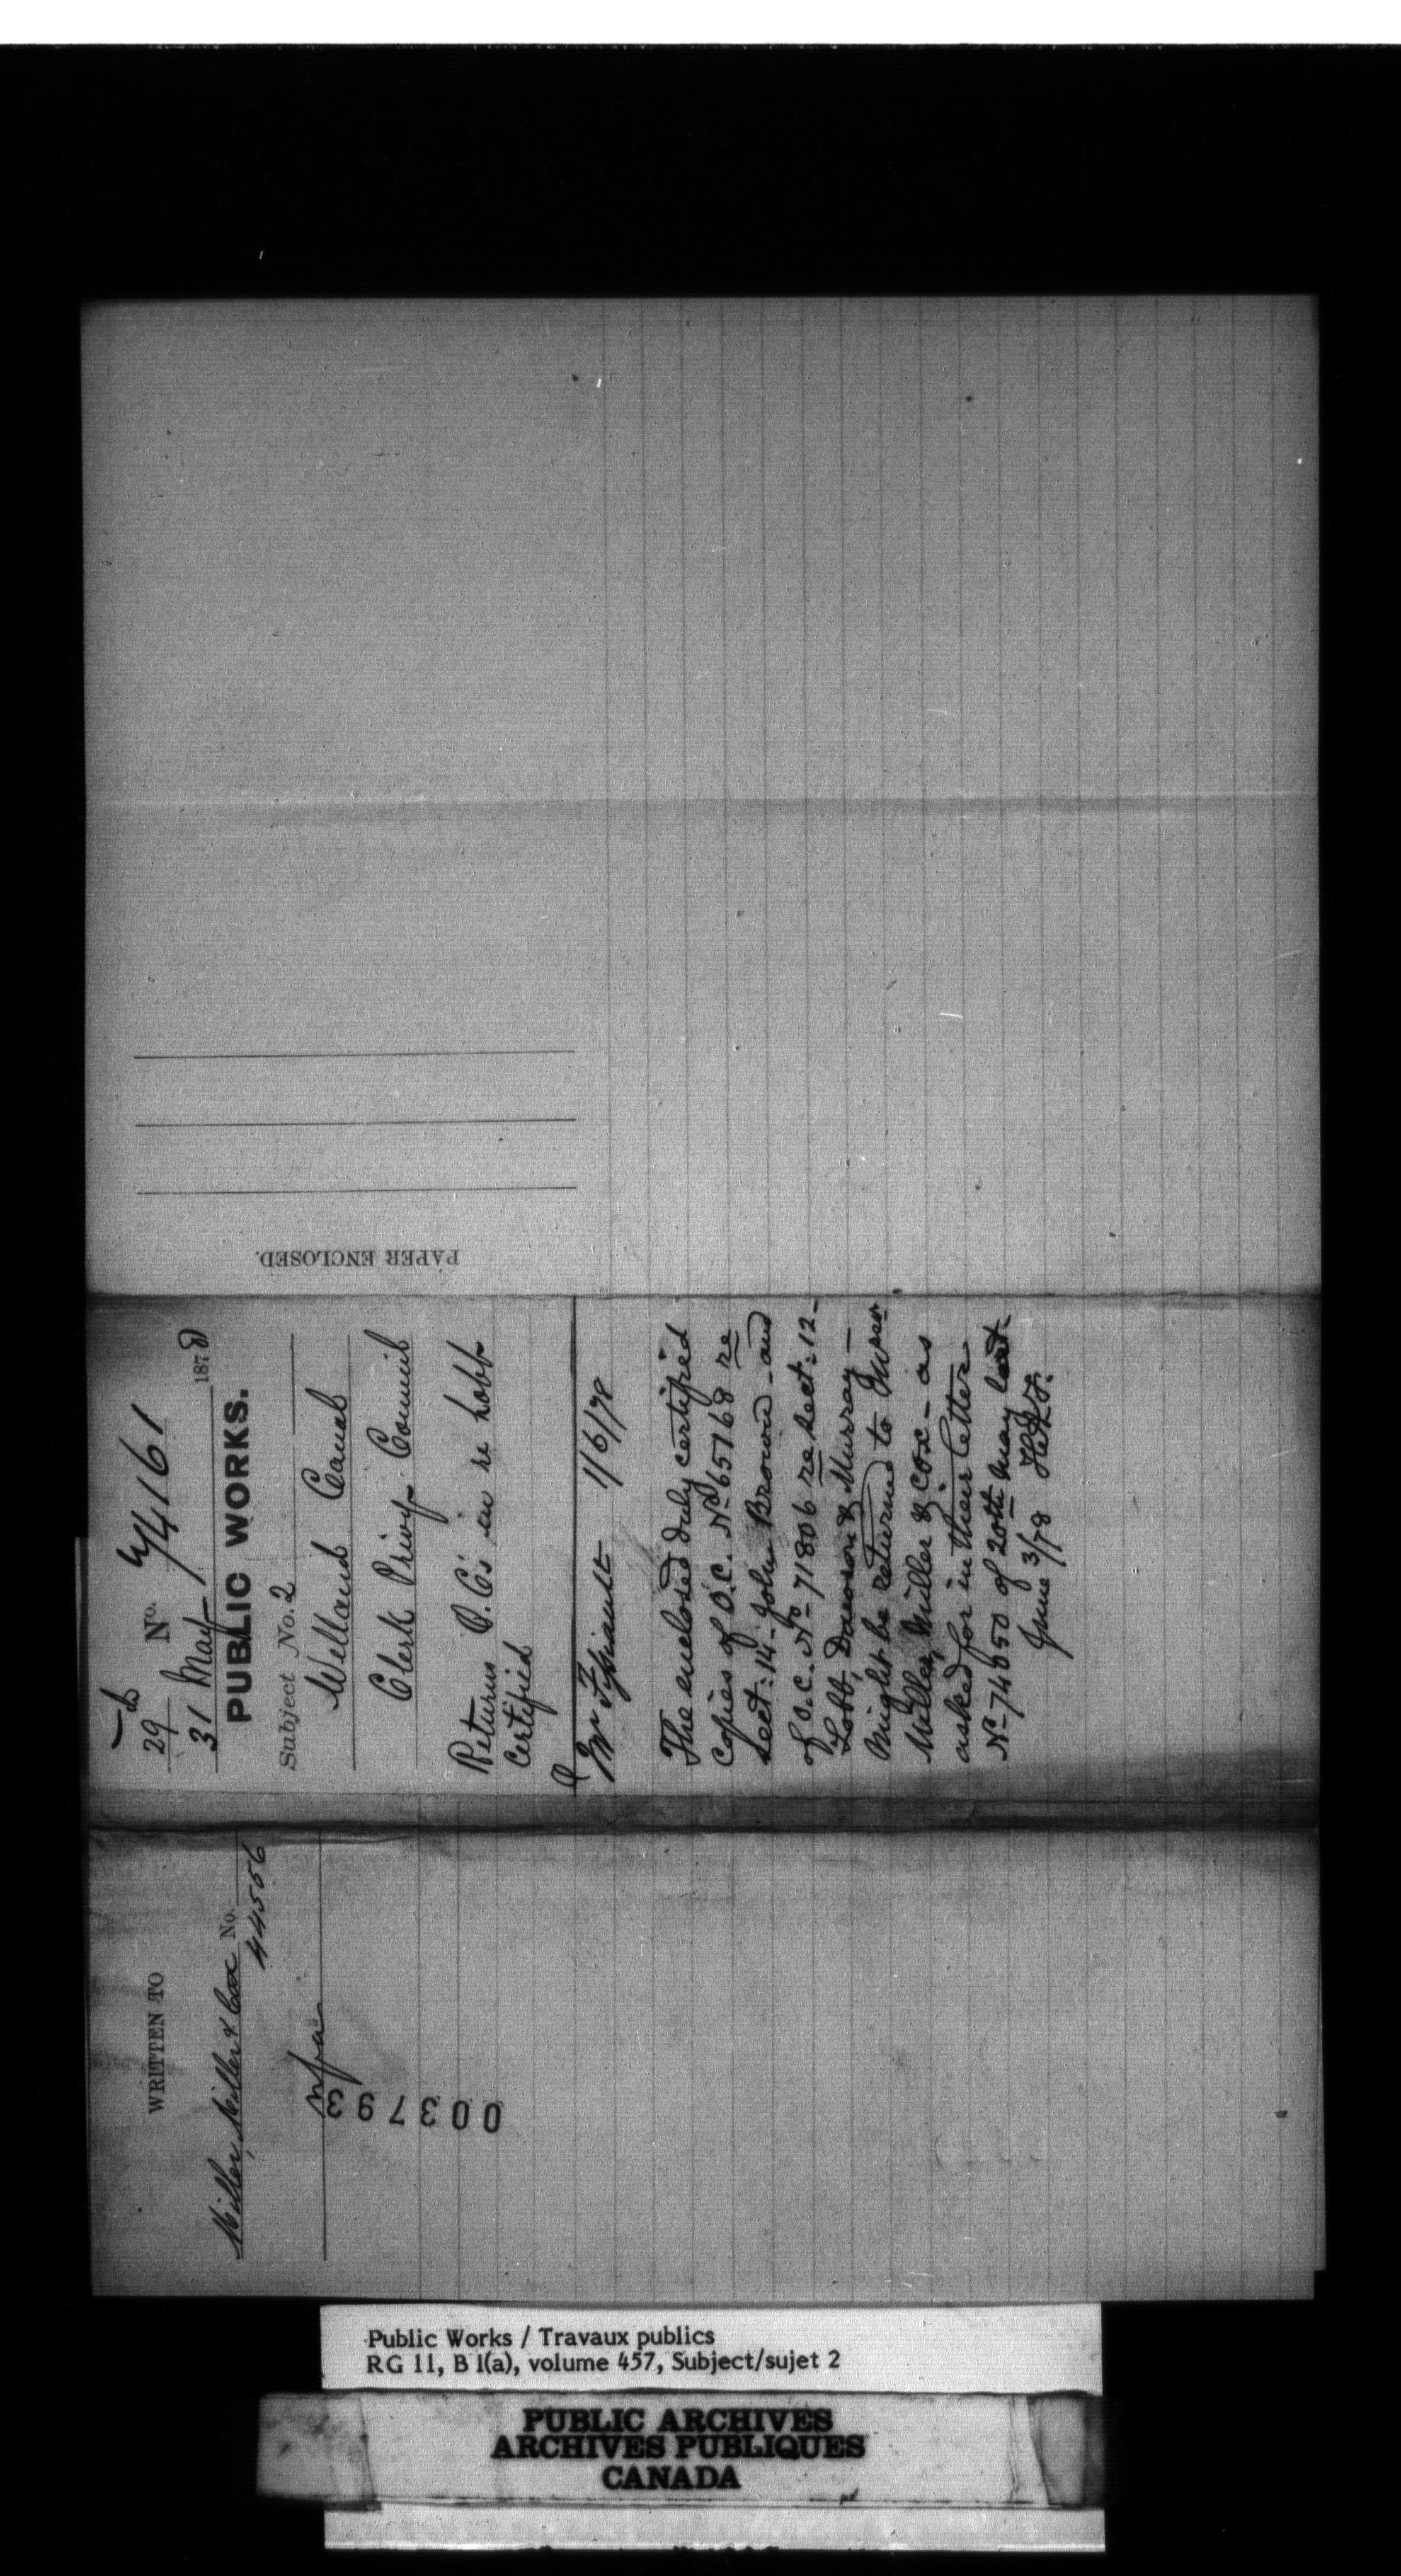 WRITTEN TO
Miller, Miller & Cox No.
44556
nfa
003793
29 No. 74161
31 May 1878
PUBLIC WORKS.
Subject No. 2
Welland Canal
Clerk Privy Council
Returns O.C's in re Lobb
Certified
Mr 1/6/78
The enclosed duly certified
copies of O.C. No 65768 re
sect: 14 - John Brown - and
of O.C. No 71806 re sect: 12 -
Lobb, Dawson & Murray -
might be returned to Messrs
Miller, Miller & Cox - as
asked for in their letter
No 74050 of 20th May last
June 3/78
PAPER ENCLOSED.
Public Works / Travaux publics
RG 11, B 1(a), volume 457, Subject/sujet 2
PUBLIC ARCHIVES
ARCHIVES PUBLIQUES
CANADA